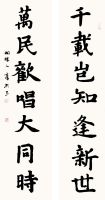 千載豈知逢新世
萬民歡唱大同時